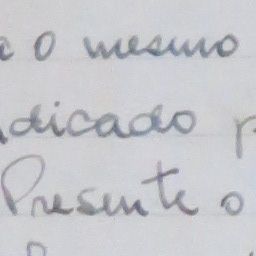 o mesmo
dicado p
Presente o